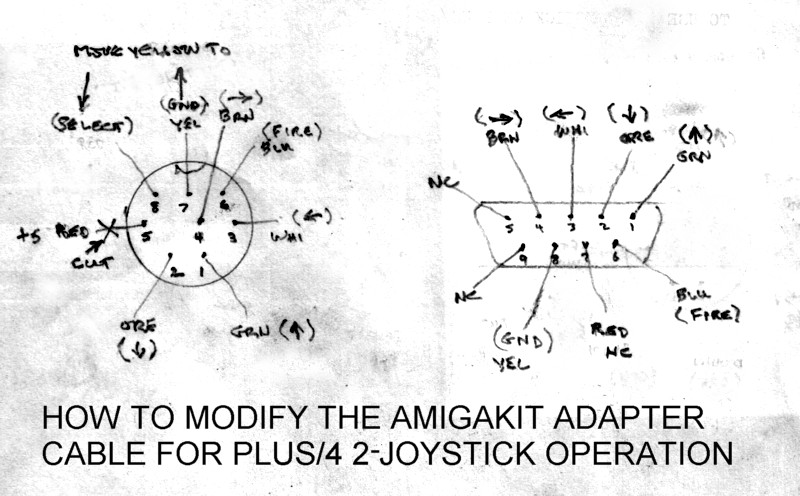 MOVE YELLOW TO
(SELECT)
(GND)
YEL
(→)
BRN
(FIRE)
BLU
8
7
6
+5 RED
CUT
5
4
3
WHI
(←)
2
1
ORE
(↓)
GRN (↑)
(→)
BRN
(←)
WHI
(↓)
ORE
(↑)
GRN
NC
5
4
3
2
1
9
8
7
6
NC
(GND)
YEL
RED
NC
BLU
(FIRE)
HOW TO MODIFY THE AMIGAKIT ADAPTER
CABLE FOR PLUS/4 2-JOYSTICK OPERATION